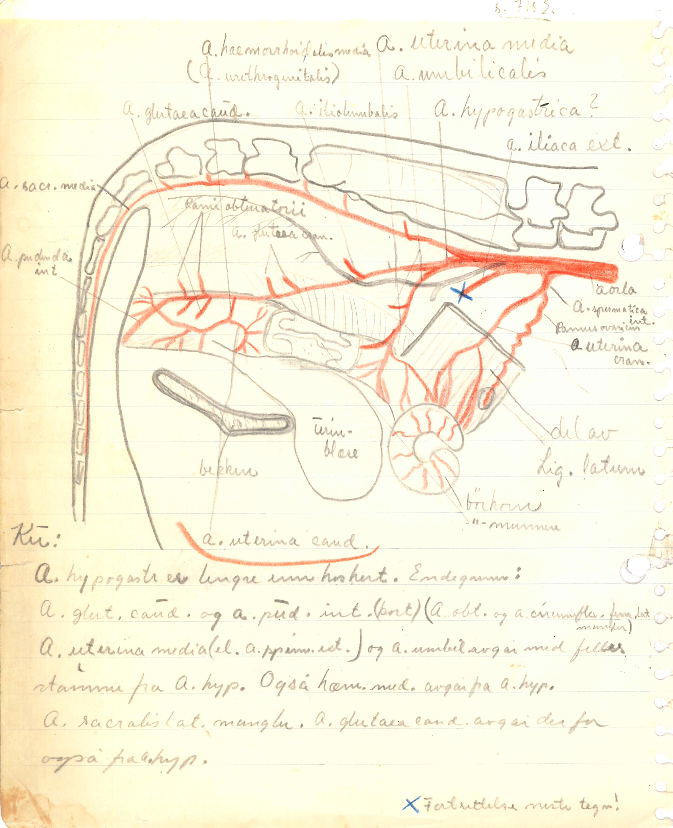 s. 715.
a. haemorrhoidalis media
a. uterina media
(a. urethrogenitalis)
a. umbilicalis
a. glutaea caud.
a. iliolumbalis
a. hypogastrica?
a. iliaca ext.
a. sacr. media
Rami obturatorii
a. glutaea cran.
a. pudenda
int
aorta
a. spermatica
int.
Ramus ovaricus
a uterina
cran.
urin-
blære
del av
Lig. latum
becken
börhorn
"-munnen
a. uterina caud.
Kü:
A. hypogastr er lengre enn hos hest. Endegrener:
A. glut. caud. og a. pud. int. (kort) (A. obt. og a. circumflex. fem. lat
mangler)
A. uterina media (el. a. sperm. ext.) og a. umbil avgår med felles
stamme fra A. hyp. Også hæm. med. avgår fra a. hyp.
A. sacralis lat. mangler. A. glutaea caud. avgår derfor
også fra a. hyp.
x Fortsettelse neste tegn!